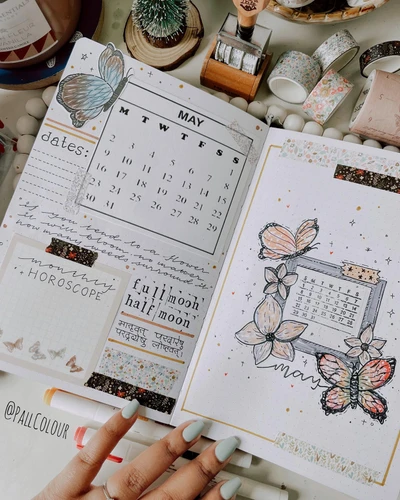 MAY
M T W T F S S
1
2 3 4 5 6 7 8
9 10 11 12 13 14 15
16 17 18 19 20 21 22
23 24 25 26 27 28 29
30 31
dates:
if you tend to a flower
it will bloom, no matter
how many weeds surround it
monthly
HOROSCOPE
full moon
half moon
मातृवत् परदारेषु
परद्रव्येषु लोष्टवत्
S M T W T F S
may
@PALLCOLOUR